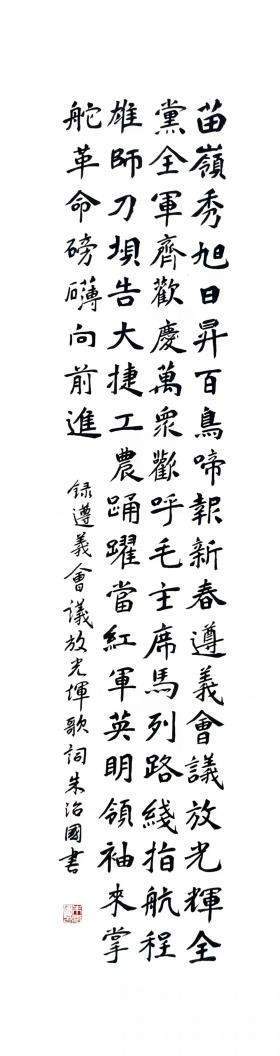 苗嶺秀旭日昇百鳥啼報新春遵義會議放光輝全
黨全軍齊歡慶萬衆歡呼毛主席馬列路綫指航程
雄師刀垻告大捷工農踴躍當紅軍英明領袖來掌
舵革命磅礴向前進
録遵義會議放光煇歌詞朱治國書